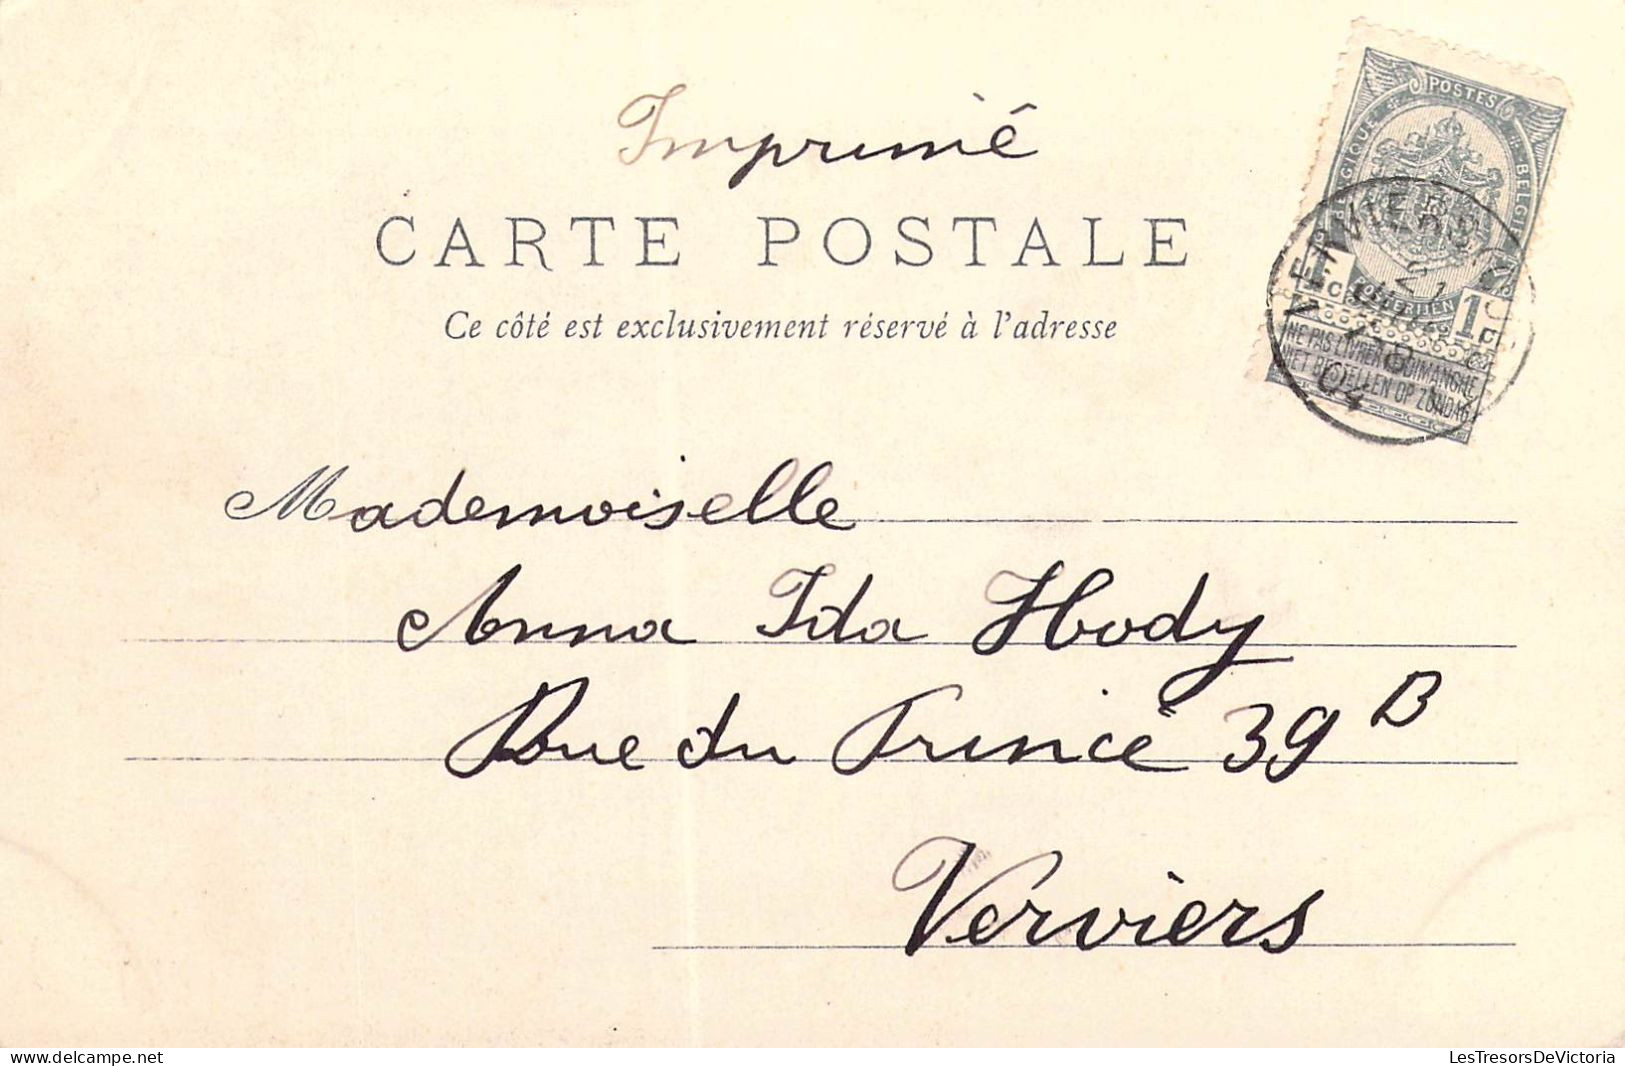 Imprimé
CARTE POSTALE
Ce côté est exclusivement réservé à l'adresse
POSTES
BELGIQUE BELGIË
POSTERIJEN
1c 1c
NE PAS LIVRER LE DIMANCHE
NIET BESTELLEN OP ZONDAG
VERVIERS
21
18
04
Mademoiselle
Anna Ida Hody
Rue du Prince 39 B
Verviers
delcampe.net
LesTresorsDeVictoria